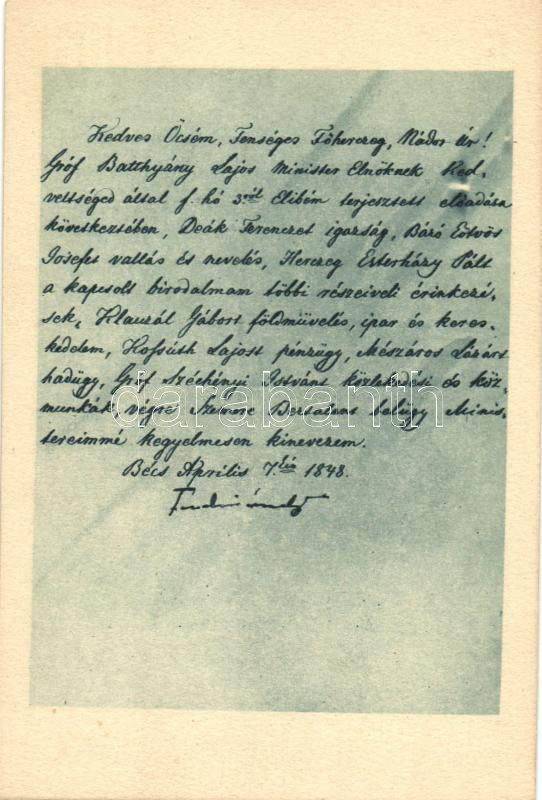 Kedves Öcsém, Fenséges Főherczeg, Nádor Úr!
Gróf Batthyány Lajos Minister Elnöknek Ked-
veltséged által f. hó 3ról Elibém terjesztett előadása
következtében, Deák Ferenczet igazság, Báró Eötvös
Josefet vallás és nevelés, Herczeg Esterházy Pált
a kapcsolt birodalmam többi részeiveli érinkezé-
sek, Klauzál Gábort földmüvelés, ipar és keres-
kedelem, Kossúth Lajost pénzügy, Mészáros Lázárt
hadügy, Gróf Széchényi Istvánt közlekedési és köz-
munkák, végre Szemere Bertalant belügy Minis-
tereimmé kegyelmesen kinevezem.
Bécs Április 7.én 1848.
Ferdinánd
darabanth